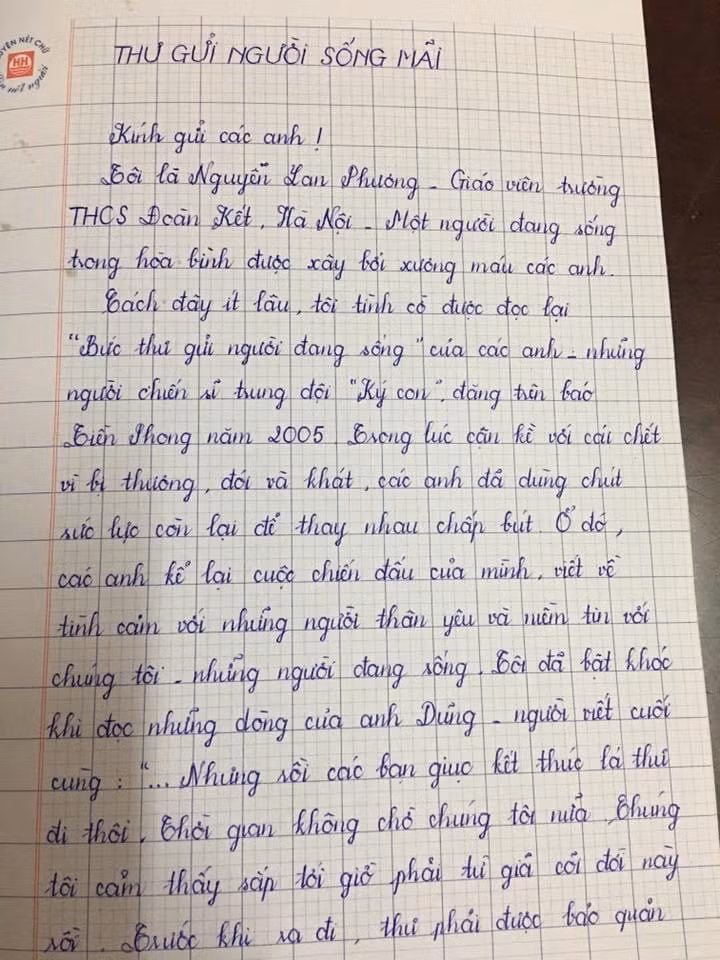 HH
THƯ GỬI NGƯỜI SỐNG MÃI
Kính gửi các anh !
Tôi là Nguyễn Lan Phương - Giáo viên trường
THCS Đoàn Kết, Hà Nội - Một người đang sống
trong hòa bình được xây bởi xương máu các anh.
Cách đây ít lâu, tôi tình cờ được đọc lại
"Bức thư gửi người đang sống" của các anh - những
người chiến sĩ trung đội "Ký con", đăng trên báo
Tiền Phong năm 2005. Trong lúc cận kề với cái chết
vì bị thương, đói và khát, các anh đã dùng chút
sức lực còn lại để thay nhau chấp bút. Ở đó,
các anh kể lại cuộc chiến đấu của mình, viết về
tình cảm với những người thân yêu và niềm tin với
chúng tôi - những người đang sống. Tôi đã bật khóc
khi đọc những dòng của anh Dũng - người viết cuối
cùng : "... Nhưng rồi các bạn giục kết thúc lá thư
đi thôi. Thời gian không chờ chúng tôi nữa. Chúng
tôi cảm thấy sắp tới giờ phải từ giã cõi đời này
rồi. Trước khi ra đi, thư phải được bảo quản